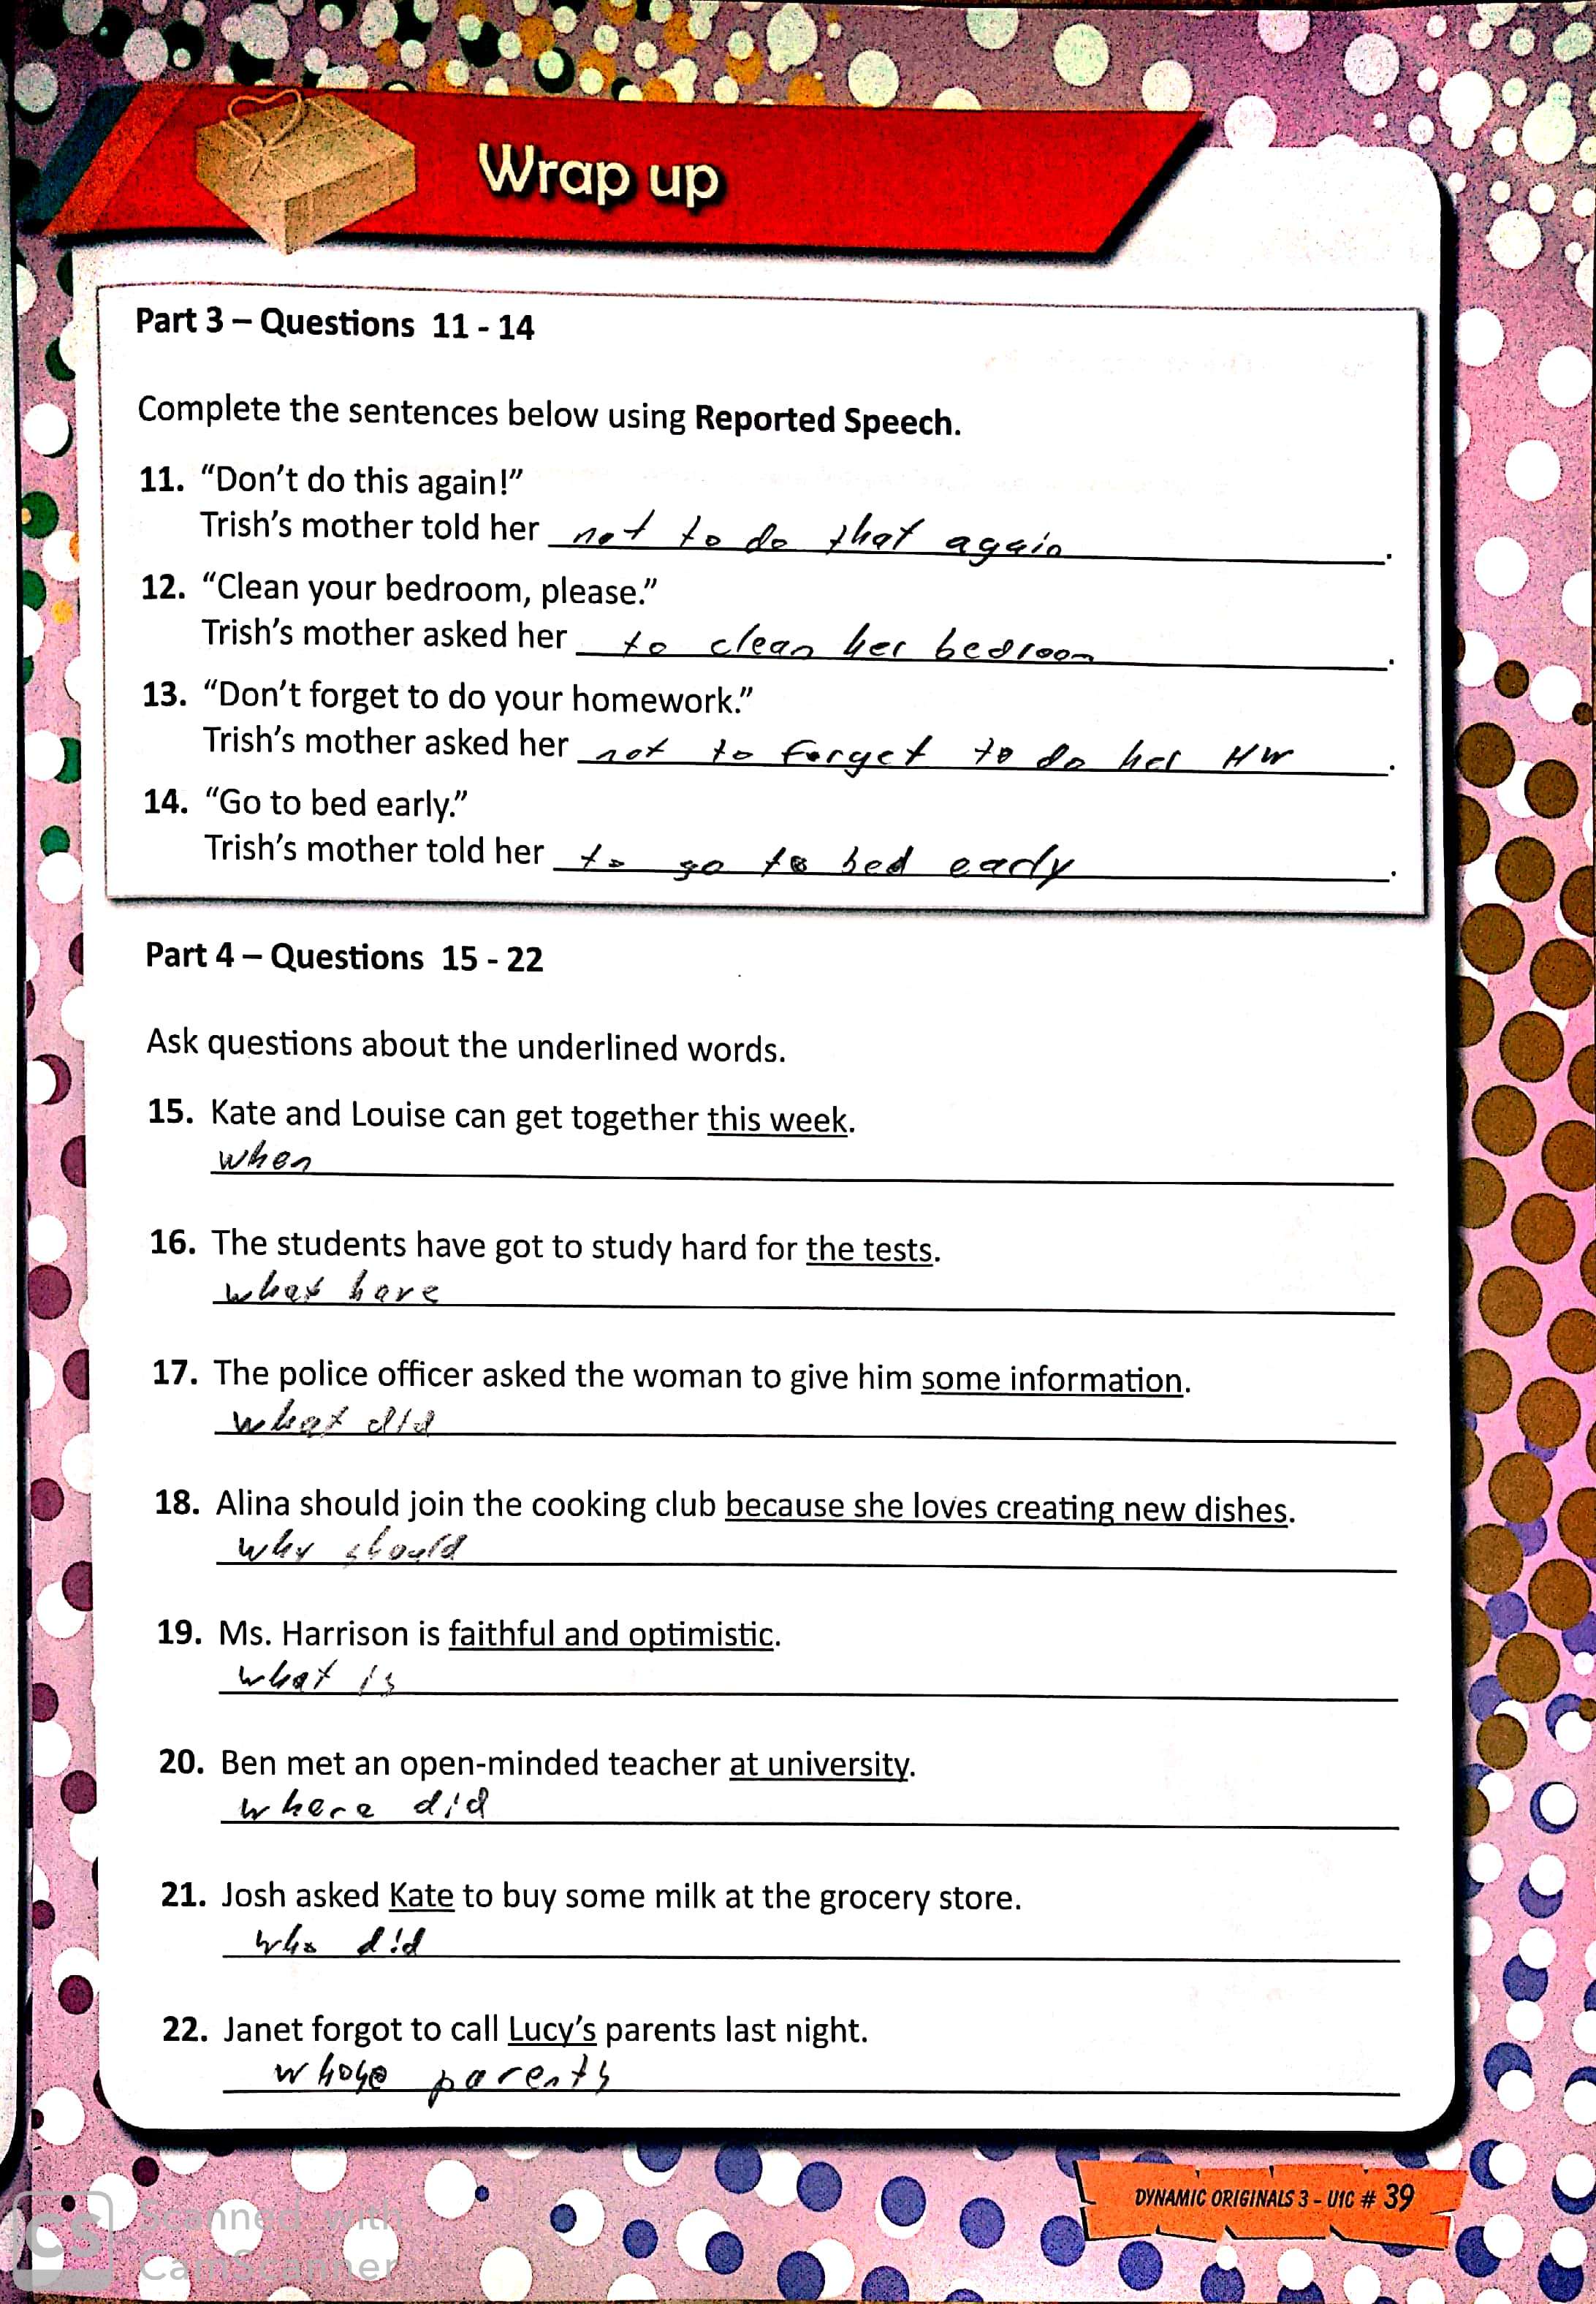 Wrap up
Part 3 – Questions 11 - 14
Complete the sentences below using Reported Speech.
11. “Don’t do this again!”
Trish’s mother told her not to do that again.
12. “Clean your bedroom, please.”
Trish’s mother asked her to clean her bedroom.
13. “Don’t forget to do your homework.”
Trish’s mother asked her not to forget to do her HW.
14. “Go to bed early.”
Trish’s mother told her to go to bed early.
Part 4 – Questions 15 - 22
Ask questions about the underlined words.
15. Kate and Louise can get together this week.
when
16. The students have got to study hard for the tests.
what have
17. The police officer asked the woman to give him some information.
what did
18. Alina should join the cooking club because she loves creating new dishes.
why should
19. Ms. Harrison is faithful and optimistic.
what is
20. Ben met an open-minded teacher at university.
where did
21. Josh asked Kate to buy some milk at the grocery store.
who did
22. Janet forgot to call Lucy’s parents last night.
whose parents
DYNAMIC ORIGINALS 3 - U1C # 39
CS Scanned with
CamScanner